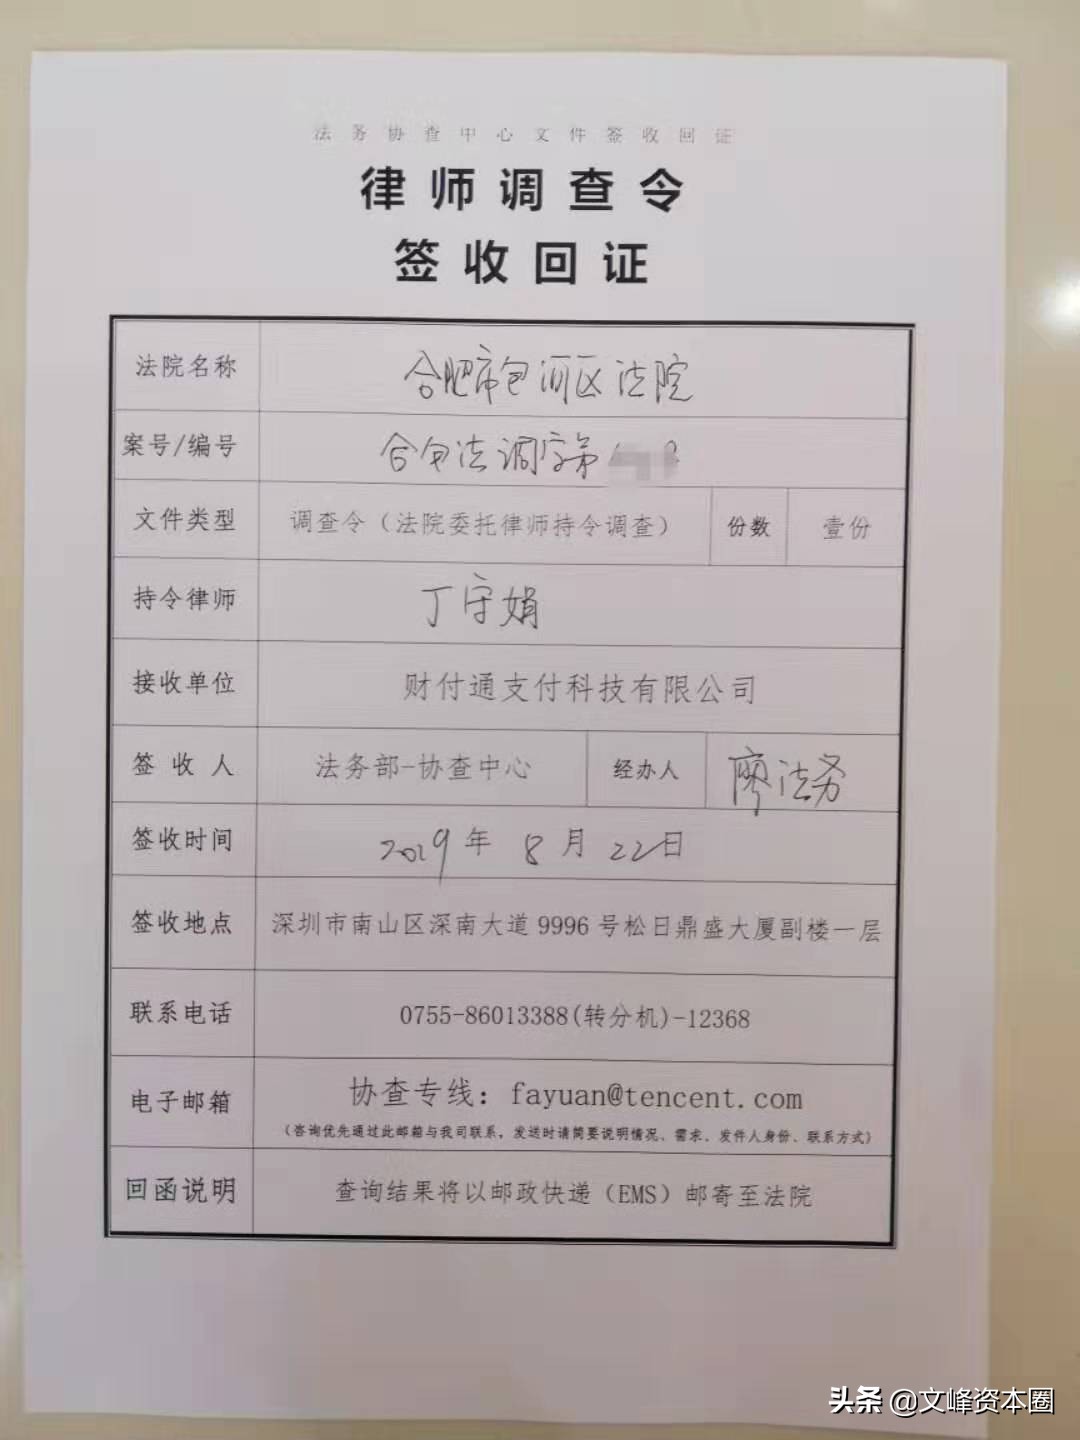 法务协查中心文件签收回证
律师调查令
签收回证
法院名称 合肥市包河区法院
案号/编号 合包法调字第
文件类型 调查令（法院委托律师持令调查） 份数 壹份
持令律师 丁守娟
接收单位 财付通支付科技有限公司
签收人 法务部-协查中心 经办人 廖法务
签收时间 2019年8月22日
签收地点 深圳市南山区深南大道9996号松日鼎盛大厦副楼一层
联系电话 0755-86013388(转分机)-12368
电子邮箱 协查专线：fayuan@tencent.com
（咨询优先通过此邮箱与我司联系，发送时请简要说明情况、需求、发件人身份、联系方式）
回函说明 查询结果将以邮政快递（EMS）邮寄至法院
头条 @文峰资本圈